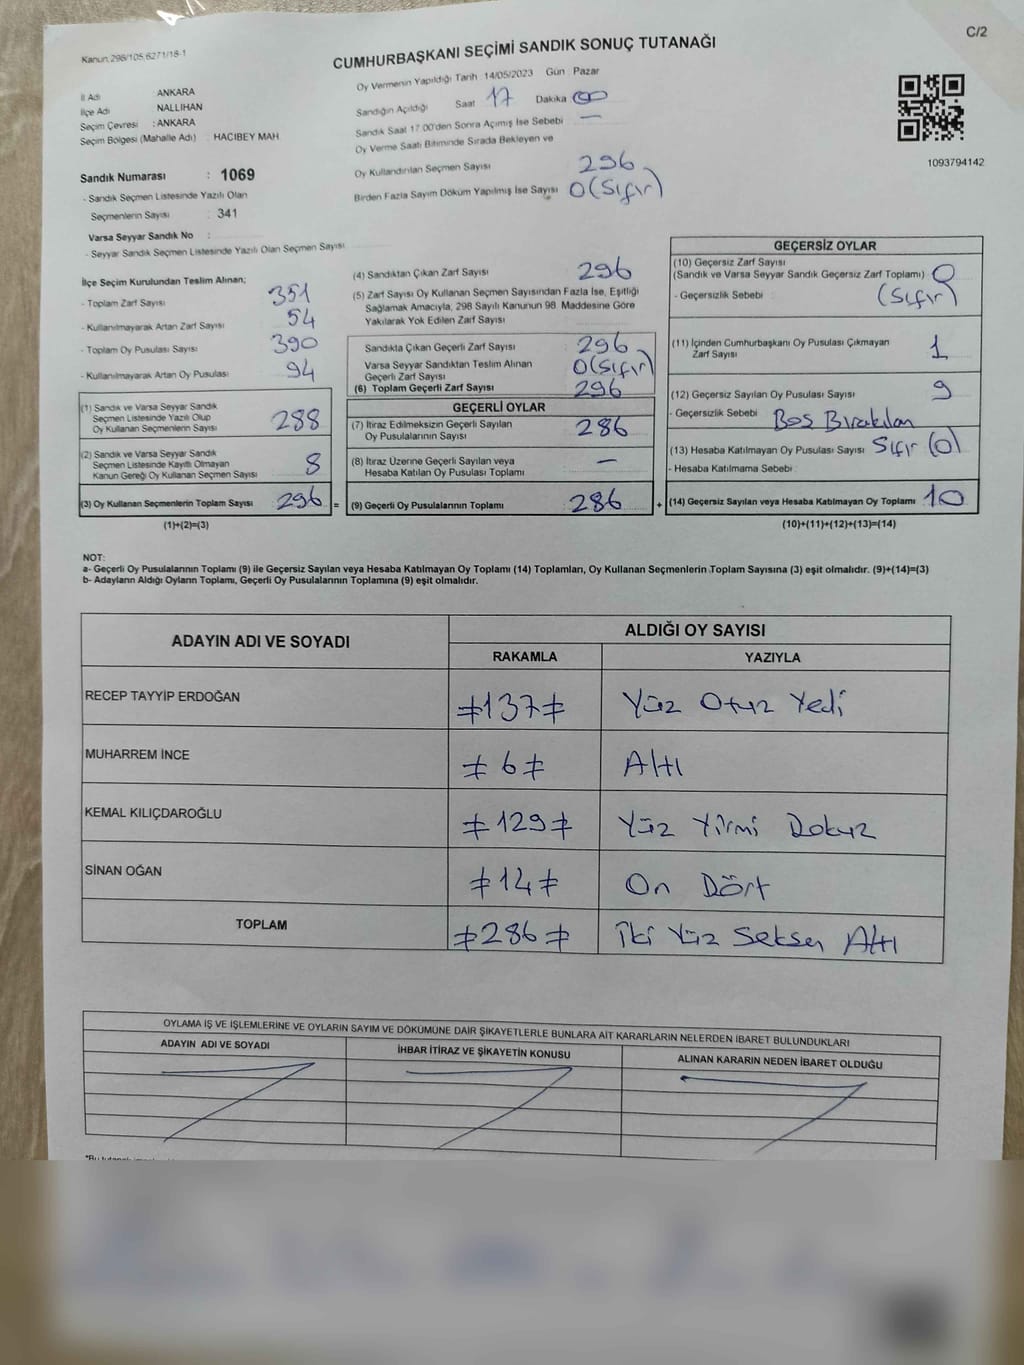 Kanun:298/105,6271/18-1
C/2
CUMHURBAŞKANI SEÇİMİ SANDIK SONUÇ TUTANAĞI
İl Adı ANKARA
İlçe Adı NALLIHAN
Seçim Çevresi : ANKARA
Seçim Bölgesi (Mahalle Adı) : HACIBEY MAH
Oy Vermenin Yapıldığı Tarih :14/05/2023 Gün : Pazar
Sandığın Açıldığı Saat 17 Dakika 00
Sandık Saat 17:00'den Sonra Açımış İse Sebebi —
Oy Verme Saati Bitiminde Sırada Bekleyen ve
Oy Kullandırılan Seçmen Sayısı 296
Birden Fazla Sayım Döküm Yapılmış İse Sayısı 0 (Sıfır)
1093794142
Sandık Numarası : 1069
- Sandık Seçmen Listesinde Yazılı Olan
Seçmenlerin Sayısı : 341
Varsa Seyyar Sandık No :
- Seyyar Sandık Seçmen Listesinde Yazılı Olan Seçmen Sayısı
İlçe Seçim Kurulundan Teslim Alınan;
- Toplam Zarf Sayısı 351
- Kullanılmayarak Artan Zarf Sayısı 54
- Toplam Oy Pusulası Sayısı 390
- Kullanılmayarak Artan Oy Pusulası 94
(1) Sandık ve Varsa Seyyar Sandık
Seçmen Listesinde Yazılı Olup
Oy Kullanan Seçmenlerin Sayısı 288
(2) Sandık ve Varsa Seyyar Sandık
Seçmen Listesinde Kayıtlı Olmayan
Kanun Gereği Oy Kullanan Seçmen Sayısı 8
(3) Oy Kullanan Seçmenlerin Toplam Sayısı 296 =
(1)+(2)=(3)
(4) Sandıktan Çıkan Zarf Sayısı 296
(5) Zarf Sayısı Oy Kullanan Seçmen Sayısından Fazla İse, Eşitliği
Sağlamak Amacıyla, 298 Sayılı Kanunun 98. Maddesine Göre
Yakılarak Yok Edilen Zarf Sayısı
Sandıkta Çıkan Geçerli Zarf Sayısı 296
Varsa Seyyar Sandıktan Teslim Alınan
Geçerli Zarf Sayısı 0 (Sıfır)
(6) Toplam Geçerli Zarf Sayısı 296
GEÇERLİ OYLAR
(7) İtiraz Edilmeksizin Geçerli Sayılan
Oy Pusulalarının Sayısı 286
(8) İtiraz Üzerine Geçerli Sayılan veya
Hesaba Katılan Oy Pusulası Toplamı —
(9) Geçerli Oy Pusulalarının Toplamı 286 +
GEÇERSİZ OYLAR
(10) Geçersiz Zarf Sayısı
(Sandık ve Varsa Seyyar Sandık Geçersiz Zarf Toplamı) 0
- Geçersizlik Sebebi (Sıfır)
(11) İçinden Cumhurbaşkanı Oy Pusulası Çıkmayan
Zarf Sayısı 1
(12) Geçersiz Sayılan Oy Pusulası Sayısı 9
- Geçersizlik Sebebi Boş Bırakılan
(13) Hesaba Katılmayan Oy Pusulası Sayısı Sıfır (0)
- Hesaba Katılmama Sebebi
(14) Geçersiz Sayılan veya Hesaba Katılmayan Oy Toplamı 10
(10)+(11)+(12)+(13)=(14)
NOT:
a- Geçerli Oy Pusulalarının Toplamı (9) ile Geçersiz Sayılan veya Hesaba Katılmayan Oy Toplamı (14) Toplamları, Oy Kullanan Seçmenlerin Toplam Sayısına (3) eşit olmalıdır. (9)+(14)=(3)
b- Adayların Aldığı Oyların Toplamı, Geçerli Oy Pusulalarının Toplamına (9) eşit olmalıdır.
ADAYIN ADI VE SOYADI ALDIĞI OY SAYISI
RAKAMLA YAZIYLA
RECEP TAYYİP ERDOĞAN ≠137≠ Yüz Otuz Yedi
MUHARREM İNCE ≠ 6≠ Altı
KEMAL KILIÇDAROĞLU ≠129≠ Yüz Yirmi Dokuz
SİNAN OĞAN ≠14≠ On Dört
TOPLAM ≠286≠ İki Yüz Seksen Altı
OYLAMA İŞ VE İŞLEMLERİNE VE OYLARIN SAYIM VE DÖKÜMÜNE DAİR ŞİKAYETLERLE BUNLARA AİT KARARLARIN NELERDEN İBARET BULUNDUKLARI
ADAYIN ADI VE SOYADI İHBAR İTİRAZ VE ŞİKAYETİN KONUSU ALINAN KARARIN NEDEN İBARET OLDUĞU